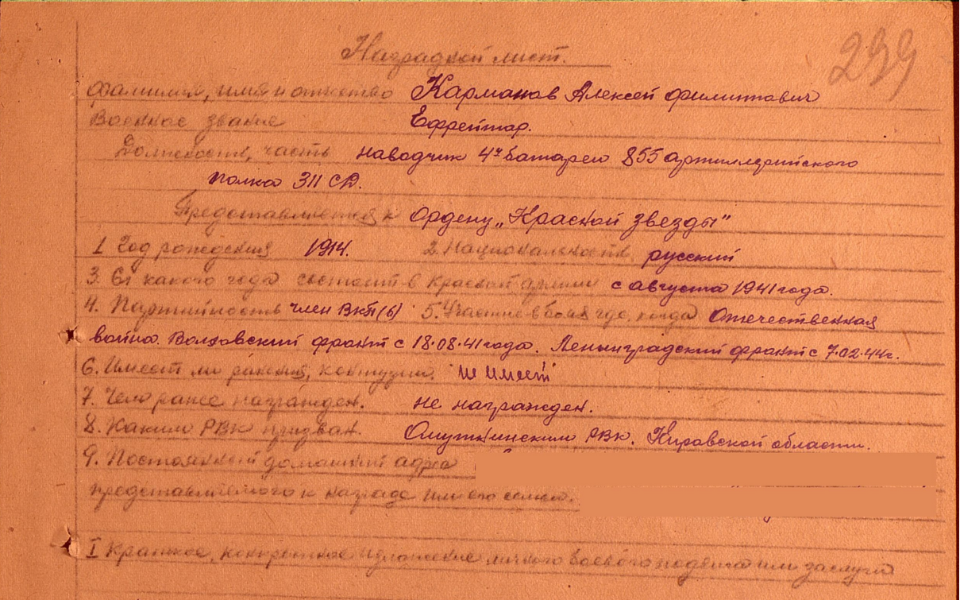 239
Наградной лист.
Фамилия, имя и отчество Карманов Алексей Филиппович
Военное звание Ефрейтор.
Должность, часть наводчик 4й батареи 855 артиллерийского
полка 311 СД.
Представляется к Ордену „Красной звезды"
1 Год рождения 1914. 2. Национальность русский
3. С какого года состоит в Красной армии с августа 1941 года.
4. Партийность член ВКП(б) 5. Участие в боях где, когда Отечественная
война. Волховский фронт с 18.08.41 года. Ленинградский фронт с 7.02.44г.
6. Имеет ли ранения, контузии. не имеет
7. Чем ранее награжден. не награжден.
8. Каким РВК призван. Омутнинским РВК. Кировской области.
9. Постоянный домашний адрес
представляемого к награде или его семьи.
I Краткое, конкретное изложение личного боевого подвига или заслуги